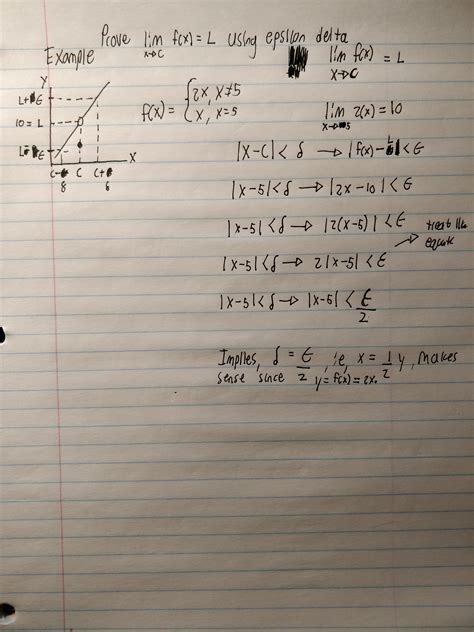 Prove lim f(x) = L using epsilon delta
x→c
Example
lim f(x) = L
x→c
y
L+ϵ
10 = L
L-ϵ
c-δ c c+δ
x
f(x) = { 2x, x≠5
x, x=5
lim 2(x) = 10
x→5
|x-c| < δ → |f(x)-L| < ϵ
|x-5| < δ → |2x-10| < ϵ
|x-5| < δ → |2(x-5)| < ϵ
treat like
equate
|x-5| < δ → 2|x-5| < ϵ
|x-5| < δ → |x-5| < ϵ/2
Implies, δ = ϵ/2, ie, x = 1/2 y, makes
sense since y = f(x) = 2x.